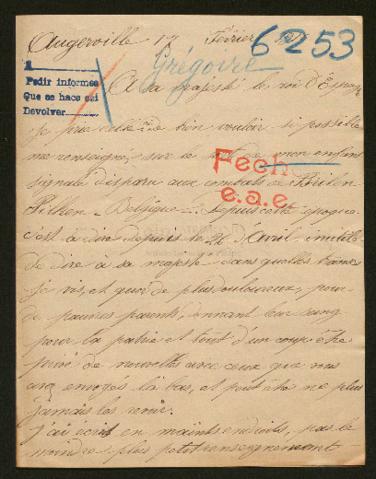 Angerville 17 Février
6253
Grégoire
1
Pedir informes
Que se hace así
Devolver
A sa majesté le roi d'Espagne
je prie bien vouloir si possible
me renseigné sur le de mon enfant
Fech
signalé disparu aux combats de
e.a.e.
Pilken - Belgique depuis cette époque
c'est à dire depuis le Avril inutile
de dire à sa majesté dans quelles transes
je vis, et quoi de plus douloureux, pour
de pauvres parents, donnant leur sang
pour la patrie et tout d'un coup être
privé de nouvelles avec ceux que nous
envoyés là bas, et peut être ne plus
jamais les revoir.
J'ai écrit en maints endroits, pas le
moindre plus petit renseignement